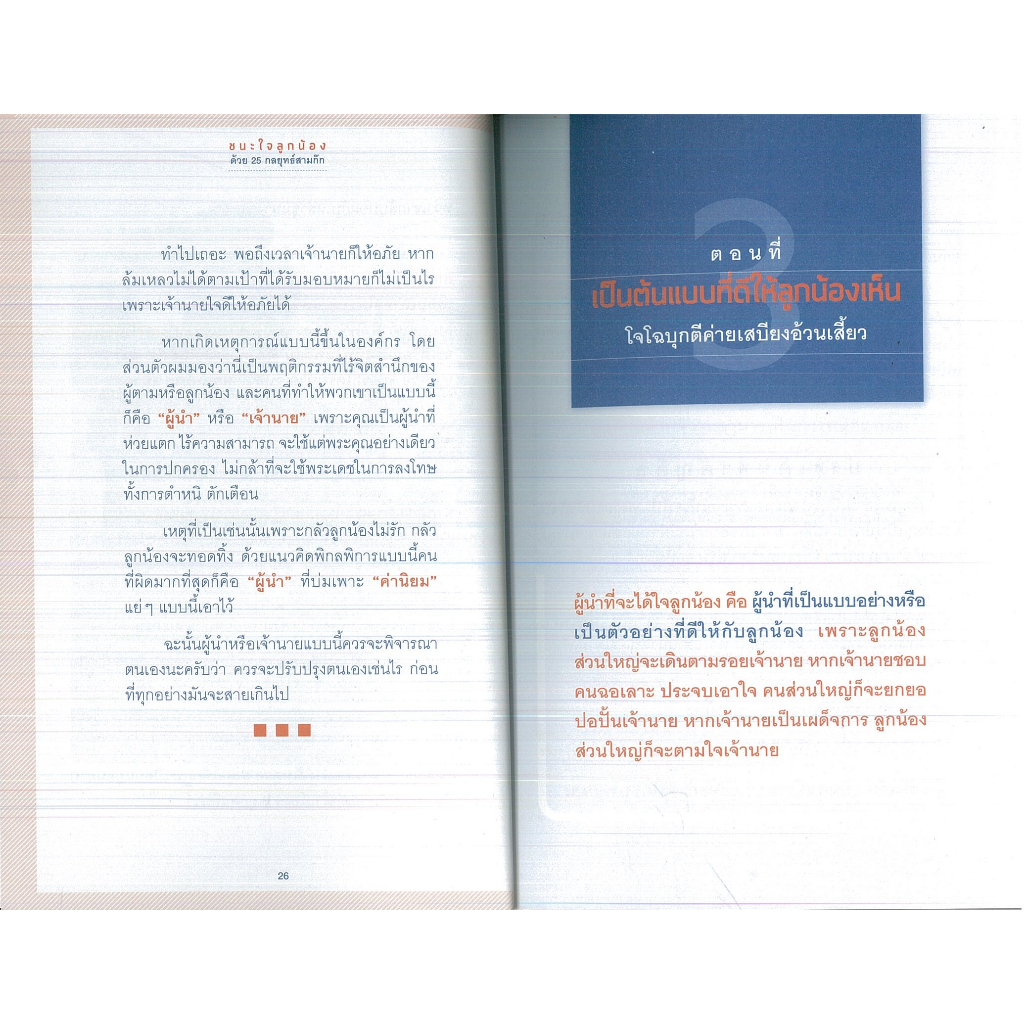 ชนะใจลูกน้อง
ด้วย 25 กลยุทธ์สามก๊ก
ทำไปเถอะ พอถึงเวลาเจ้านายก็ให้อภัย หาก
ล้มเหลวไม่ได้ตามเป้าที่ได้รับมอบหมายก็ไม่เป็นไร
เพราะเจ้านายใจดีให้อภัยได้
หากเกิดเหตุการณ์แบบนี้ขึ้นในองค์กร โดย
ส่วนตัวผมมองว่านี่เป็นพฤติกรรมที่ไร้จิตสำนึกของ
ผู้ตามหรือลูกน้อง และคนที่ทำให้พวกเขาเป็นแบบนี้
ก็คือ “ผู้นำ” หรือ “เจ้านาย” เพราะคุณเป็นผู้นำที่
ห่วยแตก ไร้ความสามารถ จะใช้แต่พระคุณอย่างเดียว
ในการปกครอง ไม่กล้าที่จะใช้พระเดชในการลงโทษ
ทั้งการตำหนิ ตักเตือน
เหตุที่เป็นเช่นนั้นเพราะกลัวลูกน้องไม่รัก กลัว
ลูกน้องจะทอดทิ้ง ด้วยแนวคิดพิกลพิการแบบนี้คน
ที่ผิดมากที่สุดก็คือ “ผู้นำ” ที่บ่มเพาะ “ค่านิยม”
แย่ๆ แบบนี้เอาไว้
ฉะนั้นผู้นำหรือเจ้านายแบบนี้ควรจะพิจารณา
ตนเองนะครับว่า ควรจะปรับปรุงตนเองเช่นไร ก่อน
ที่ทุกอย่างมันจะสายเกินไป
26
ตอนที่
3
เป็นต้นแบบที่ดีให้ลูกน้องเห็น
โจโฉบุกตีค่ายเสบียงอ้วนเสี้ยว
ผู้นำที่จะได้ใจลูกน้อง คือ ผู้นำที่เป็นแบบอย่างหรือ
เป็นตัวอย่างที่ดีให้กับลูกน้อง เพราะลูกน้อง
ส่วนใหญ่จะเดินตามรอยเจ้านาย หากเจ้านายชอบ
คนฉอเลาะ ประจบเอาใจ คนส่วนใหญ่ก็จะยกยอ
ปอปั้นเจ้านาย หากเจ้านายเป็นเผด็จการ ลูกน้อง
ส่วนใหญ่ก็จะตามใจเจ้านาย